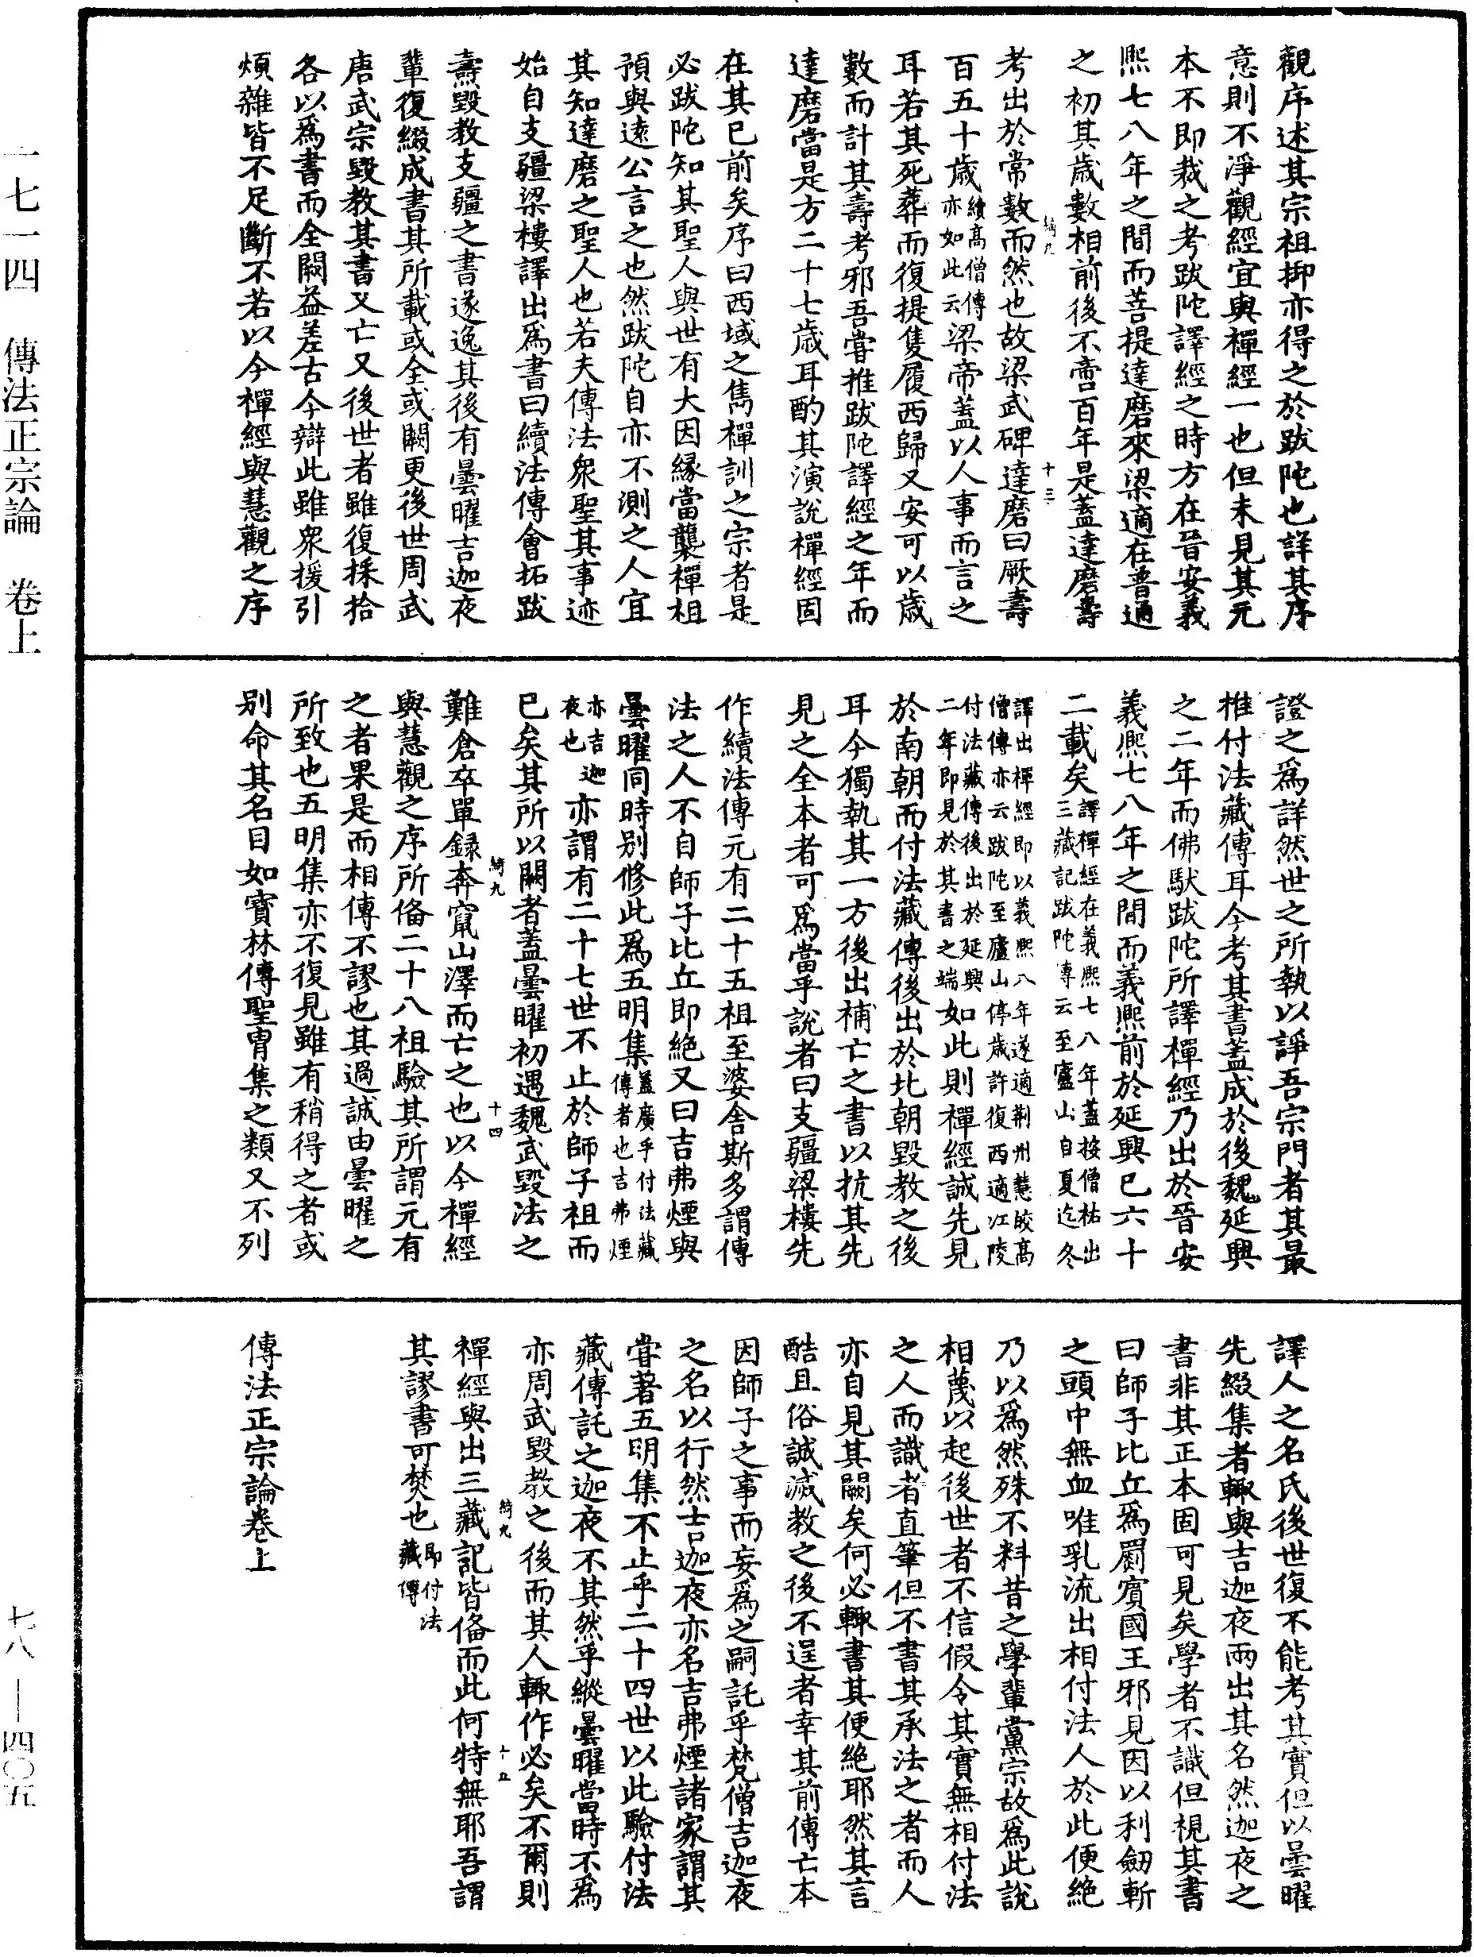 觀序述其宗祖抑亦得之於跋陀也詳其序
意則不淨觀經宜與禪經一也但未見其元
本不即裁之考跋陀譯經之時方在晉安義
熈七八年之間而菩提達磨來梁適在普通
之初其歲數相前後不啻百年是蓋達磨壽
考出於常數而然也故梁武碑達磨曰厥壽
百五十歲續高僧傳亦如此云梁帝蓋以人事而言之
耳若其死葬而復提隻履西歸又安可以歲
數而計其壽考邪吾嘗推跋陀譯經之年而
達磨當是方二十七歲耳酌其演說禪經固
在其已前矣序曰西域之雋禪訓之宗者是
必跋陀知其聖人與世有大因緣當襲禪祖
預與遠公言之也然跋陀自亦不測之人宜
其知達磨之聖人也若夫傳法衆聖其事迹
始自支疆梁樓譯出爲書曰續法傳會拓跋
燾毀教支疆之書遂逸其後有曇曜吉迦夜
輩復綴成書其所載或全或闕更後世周武
唐武宗毀教其書又亡又後世者雖復採拾
各以爲書而全闕益差古今辯此雖衆援引
煩雜皆不足斷不若以今禪經與慧觀之序
綺九
十三
證之爲詳然世之所執以諍吾宗門者其最
推付法藏傳耳今考其書蓋成於後魏延興
之二年而佛馱跋陀所譯禪經乃出於晉安
義熈七八年之間而義熈前於延興已六十
二載矣譯禪經在義熈七八年蓋按僧祐出三藏記跋陀傳云至廬山自夏迄冬
譯出禪經即以義熈八年遂適荆州慧皎高僧傳亦云跋陀至廬山停歲許復西適江陵
付法藏傳後出於延興二年即見於其書之端如此則禪經誠先見
於南朝而付法藏傳後出於北朝毀教之後
耳今獨執其一方後出補亡之書以抗其先
見之全本者可爲當乎說者曰支疆梁樓先
作續法傳元有二十五祖至婆舍斯多謂傳
法之人不自師子比丘即絶又曰吉弗煙與
曇曜同時別修此爲五明集蓋廣乎付法藏傳者也吉弗煙
亦吉迦夜也亦謂有二十七世不止於師子祖而
已矣其所以闕者蓋曇曜初遇魏武毀法之
難倉卒單録奔竄山澤而亡之也以今禪經
與慧觀之序所俻二十八祖驗其所謂元有
之者果是而相傳不謬也其過誠由曇曜之
所致也五明集亦不復見雖有稍得之者或
別命其名目如寶林傳聖胄集之類又不列
綺九
十四
譯人之名氏後世復不能考其實但以曇曜
先綴集者輙與吉迦夜兩出其名然迦夜之
書非其正本固可見矣學者不識但視其書
曰師子比丘爲罽賓國王邪見因以利劒斬
之頭中無血唯乳流出相付法人於此便絶
乃以爲然殊不料昔之學輩黨宗故爲此說
相蔑以起後世者不信假令其實無相付法
之人而識者直筆但不書其承法之者而人
亦自見其闕矣何必輙書其便絶耶然其言
酷且俗誠滅教之後不逞者幸其前傳亡本
因師子之事而妄爲之嗣託乎梵僧吉迦夜
之名以行然吉迦夜亦名吉弗煙諸家謂其
甞著五明集不止乎二十四世以此驗付法
藏傳託之迦夜不其然乎縱曇曜當時不爲
亦周武毀教之後而其人輙作必矣不爾則
禪經與出三藏記皆俻而此何特無耶吾謂
其謬書可焚也即付法藏傳
綺九
十五
傳法正宗論卷上
一七一四　傳法正宗論　卷上
七八——四〇五